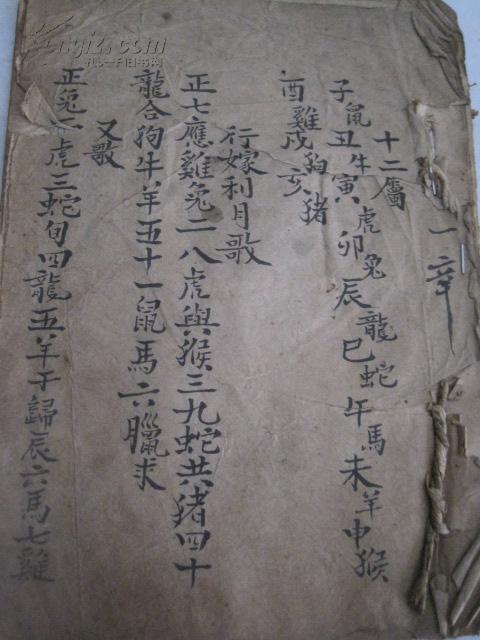 一章
十二屬
子鼠丑牛寅虎卯兔辰龍巳蛇午馬未羊申猴
酉雞戌狗亥猪
行嫁利月歌
正七應雞兔二八虎與猴三九蛇共猪四十
龍合狗牛羊五十一鼠馬六臘求
又歌
正兔二虎三蛇旬四龍五羊干歸辰六馬七雞